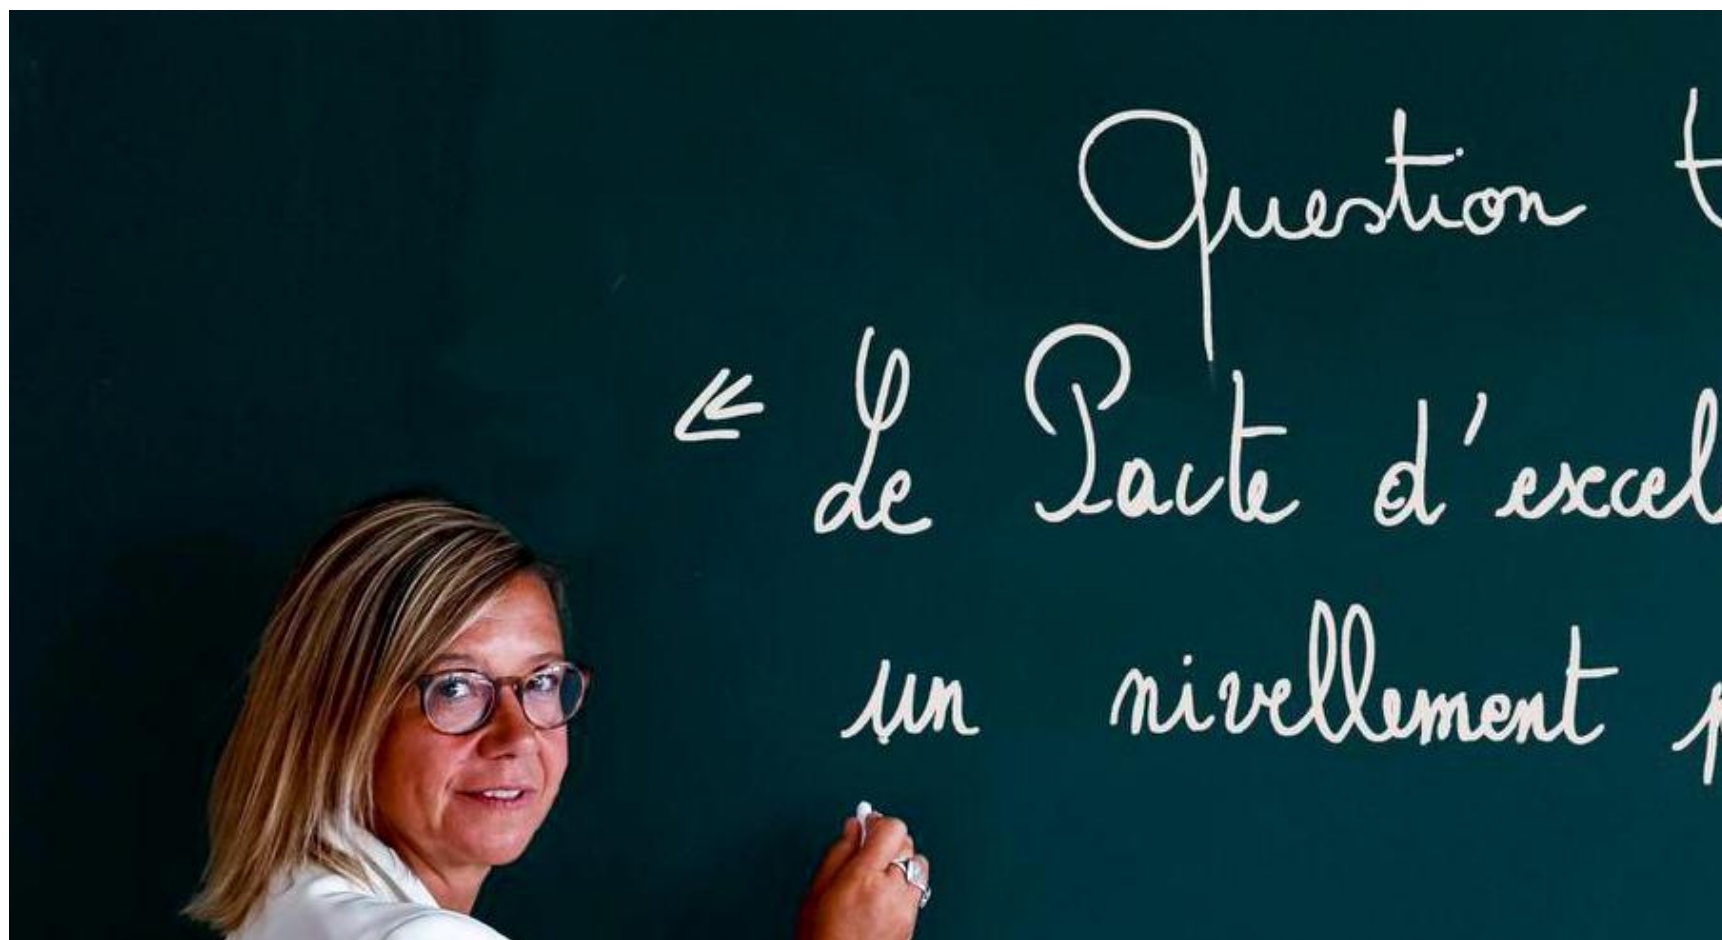 Question t
« Le Pacte d'excel
un nivellement p